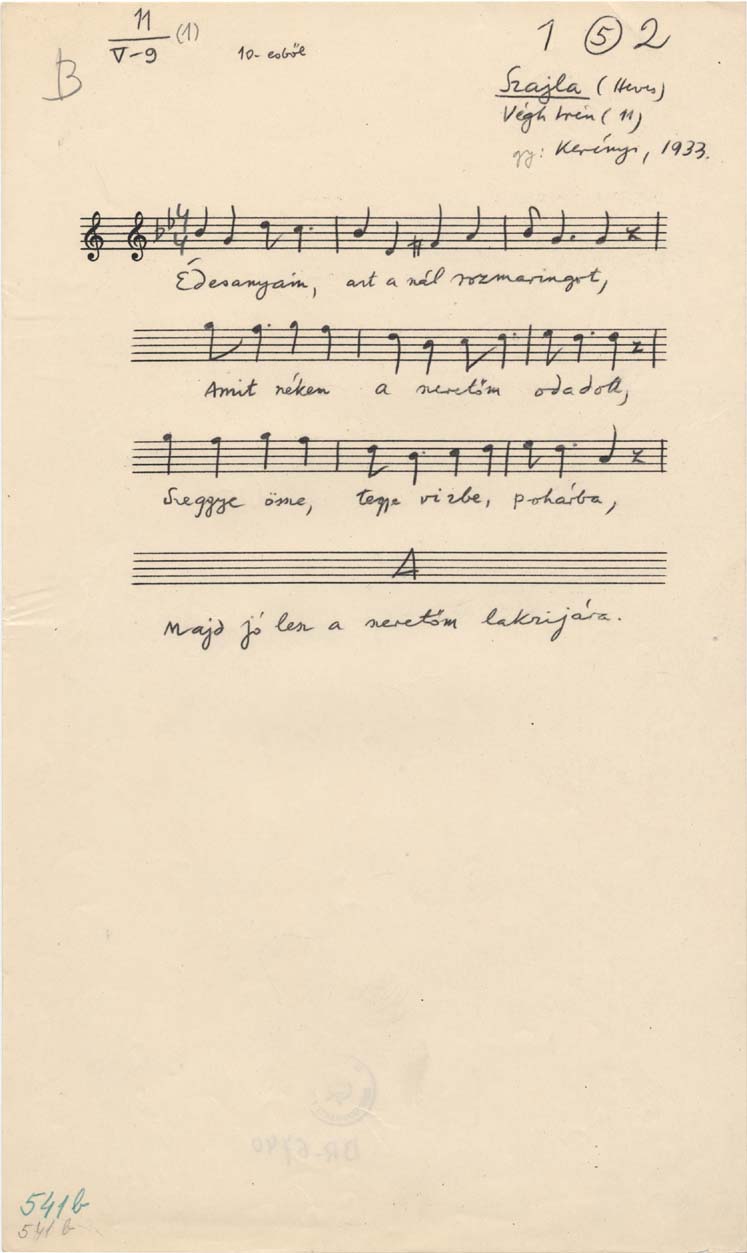 11
V-9 (1)
B
10-esből
1 5 2
Szajla (Heves)
Végh Irén (11)
gy: Kerényi, 1933.
4
4
Édesanyám, azt a szál rozmaringot,
Amit nékem a szeretőm odadott,
Szeggye össze, tegye vizbe, pohárba,
A
Majd jó lesz a szeretőm lakzijára.
541b
541b